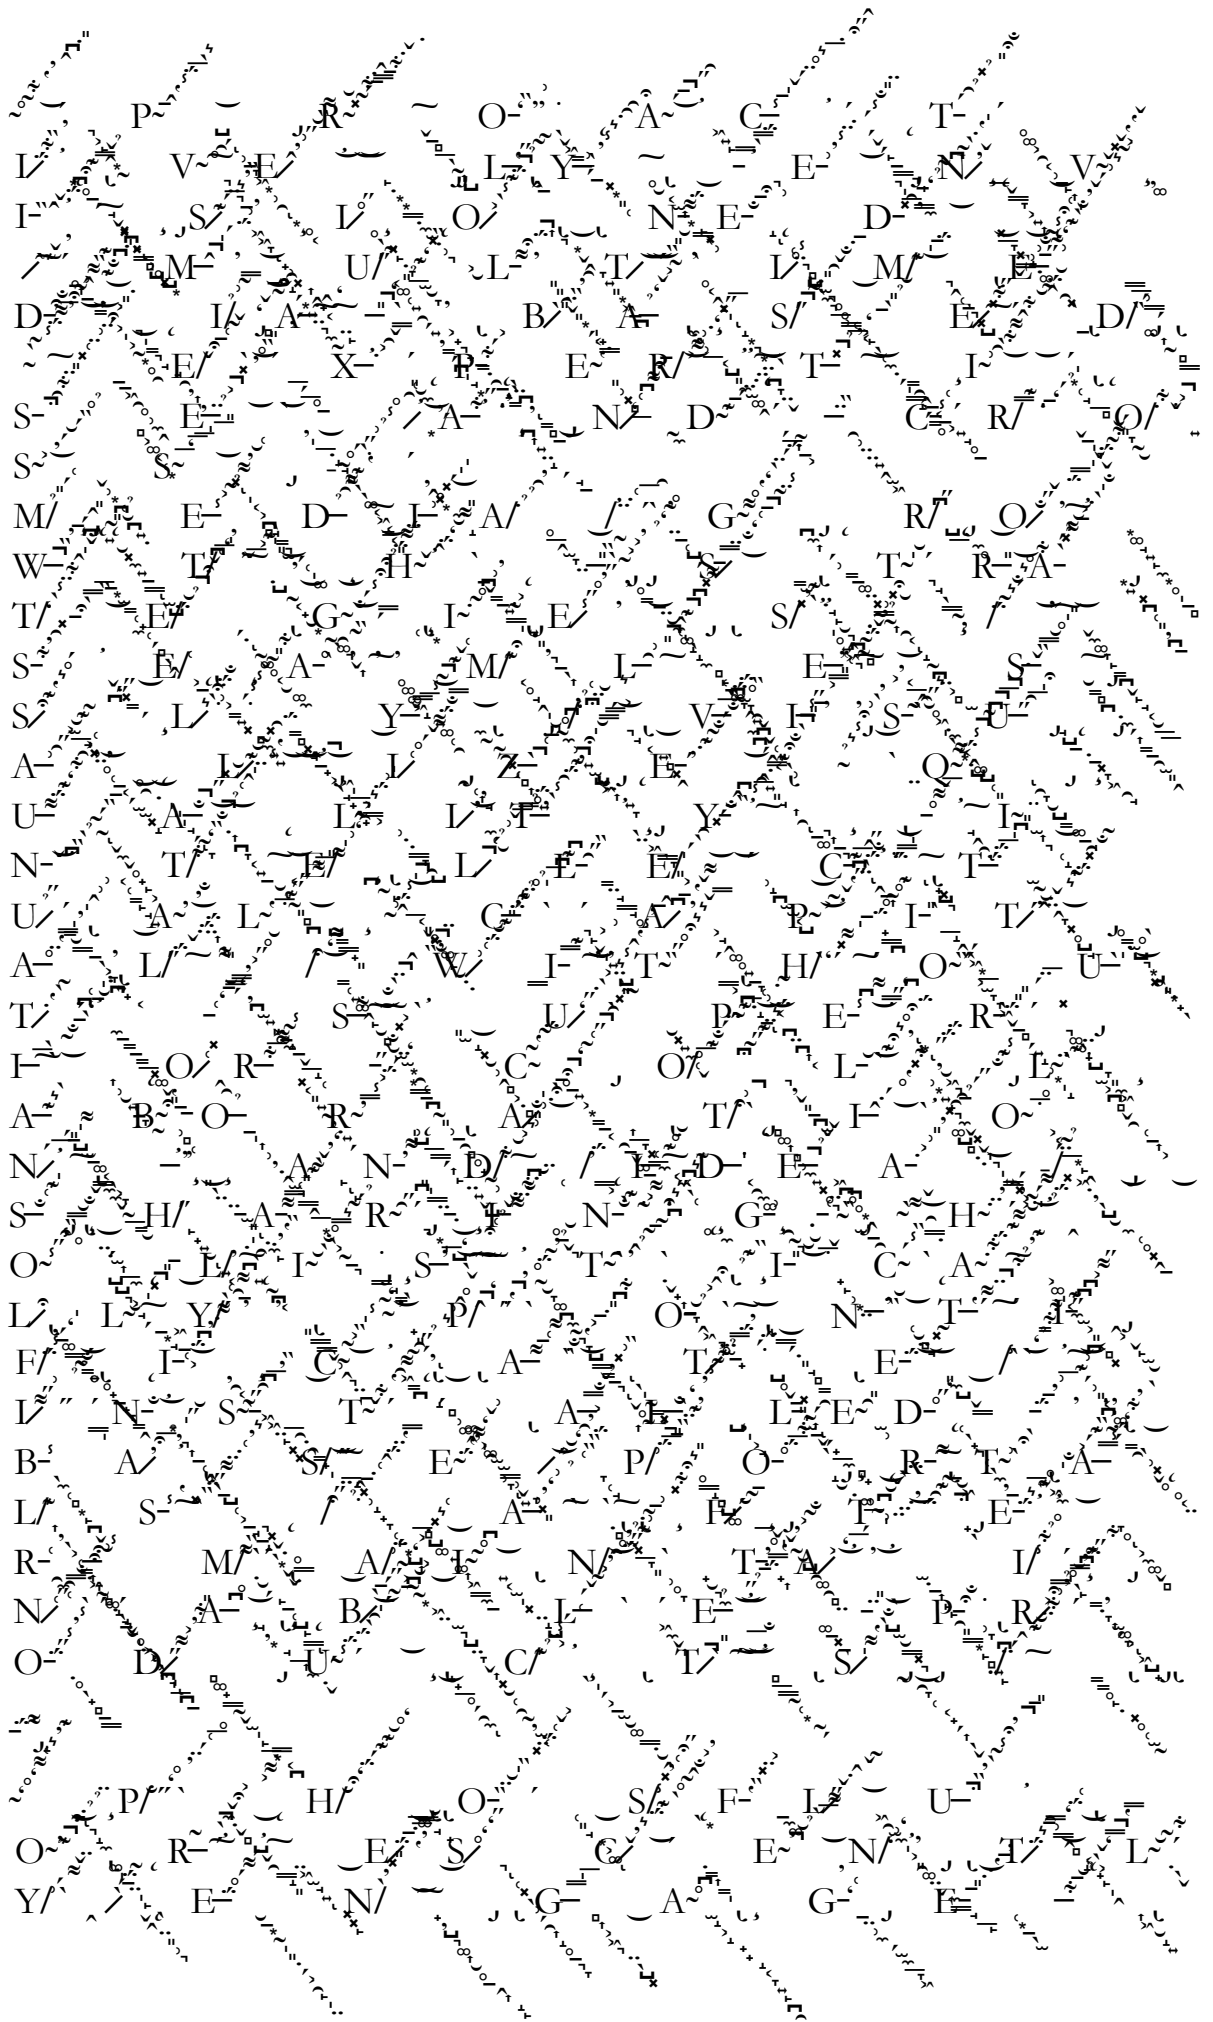 PROACT
IVELY ENV
ISIONED
MULTIME
DIA BASED
EXPERTI
SE AND CRO
SS
MEDIA GRO
WTH STRA
TEGIES
SEAMLES
SLY VISU
ALIZE Q
UALITY I
NTELLECT
UAL CAPIT
AL WITHOU
T SUPER
IOR COLL
ABORATIO
N AND IDEA
SHARING H
OLISTICA
LLY PONTI
FICATE
INSTALLED
BASE PORTA
LS AFTE
R MAINTAI
NABLE PR
ODUCTS
PHOSFLU
ORESCENTL
Y ENGAGE